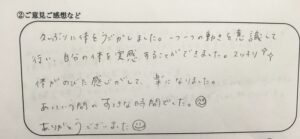 ②ご意見ご感想など
体をうごかしました。一つ一つの動きを意識して
行い、自分の体を実感することができました。スッキリ
体がのびた感じがして、楽になりました。
あっという間のすてきな時間でした。
ありがとうございました